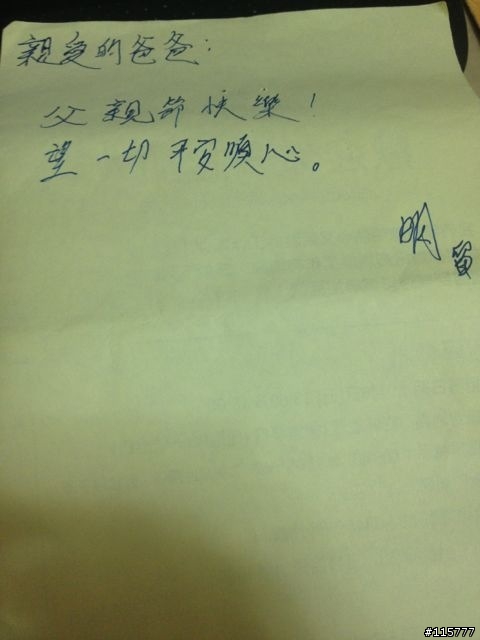 親愛的爸爸：
父親節快樂！
望一切平安順心。
明
留
#115777